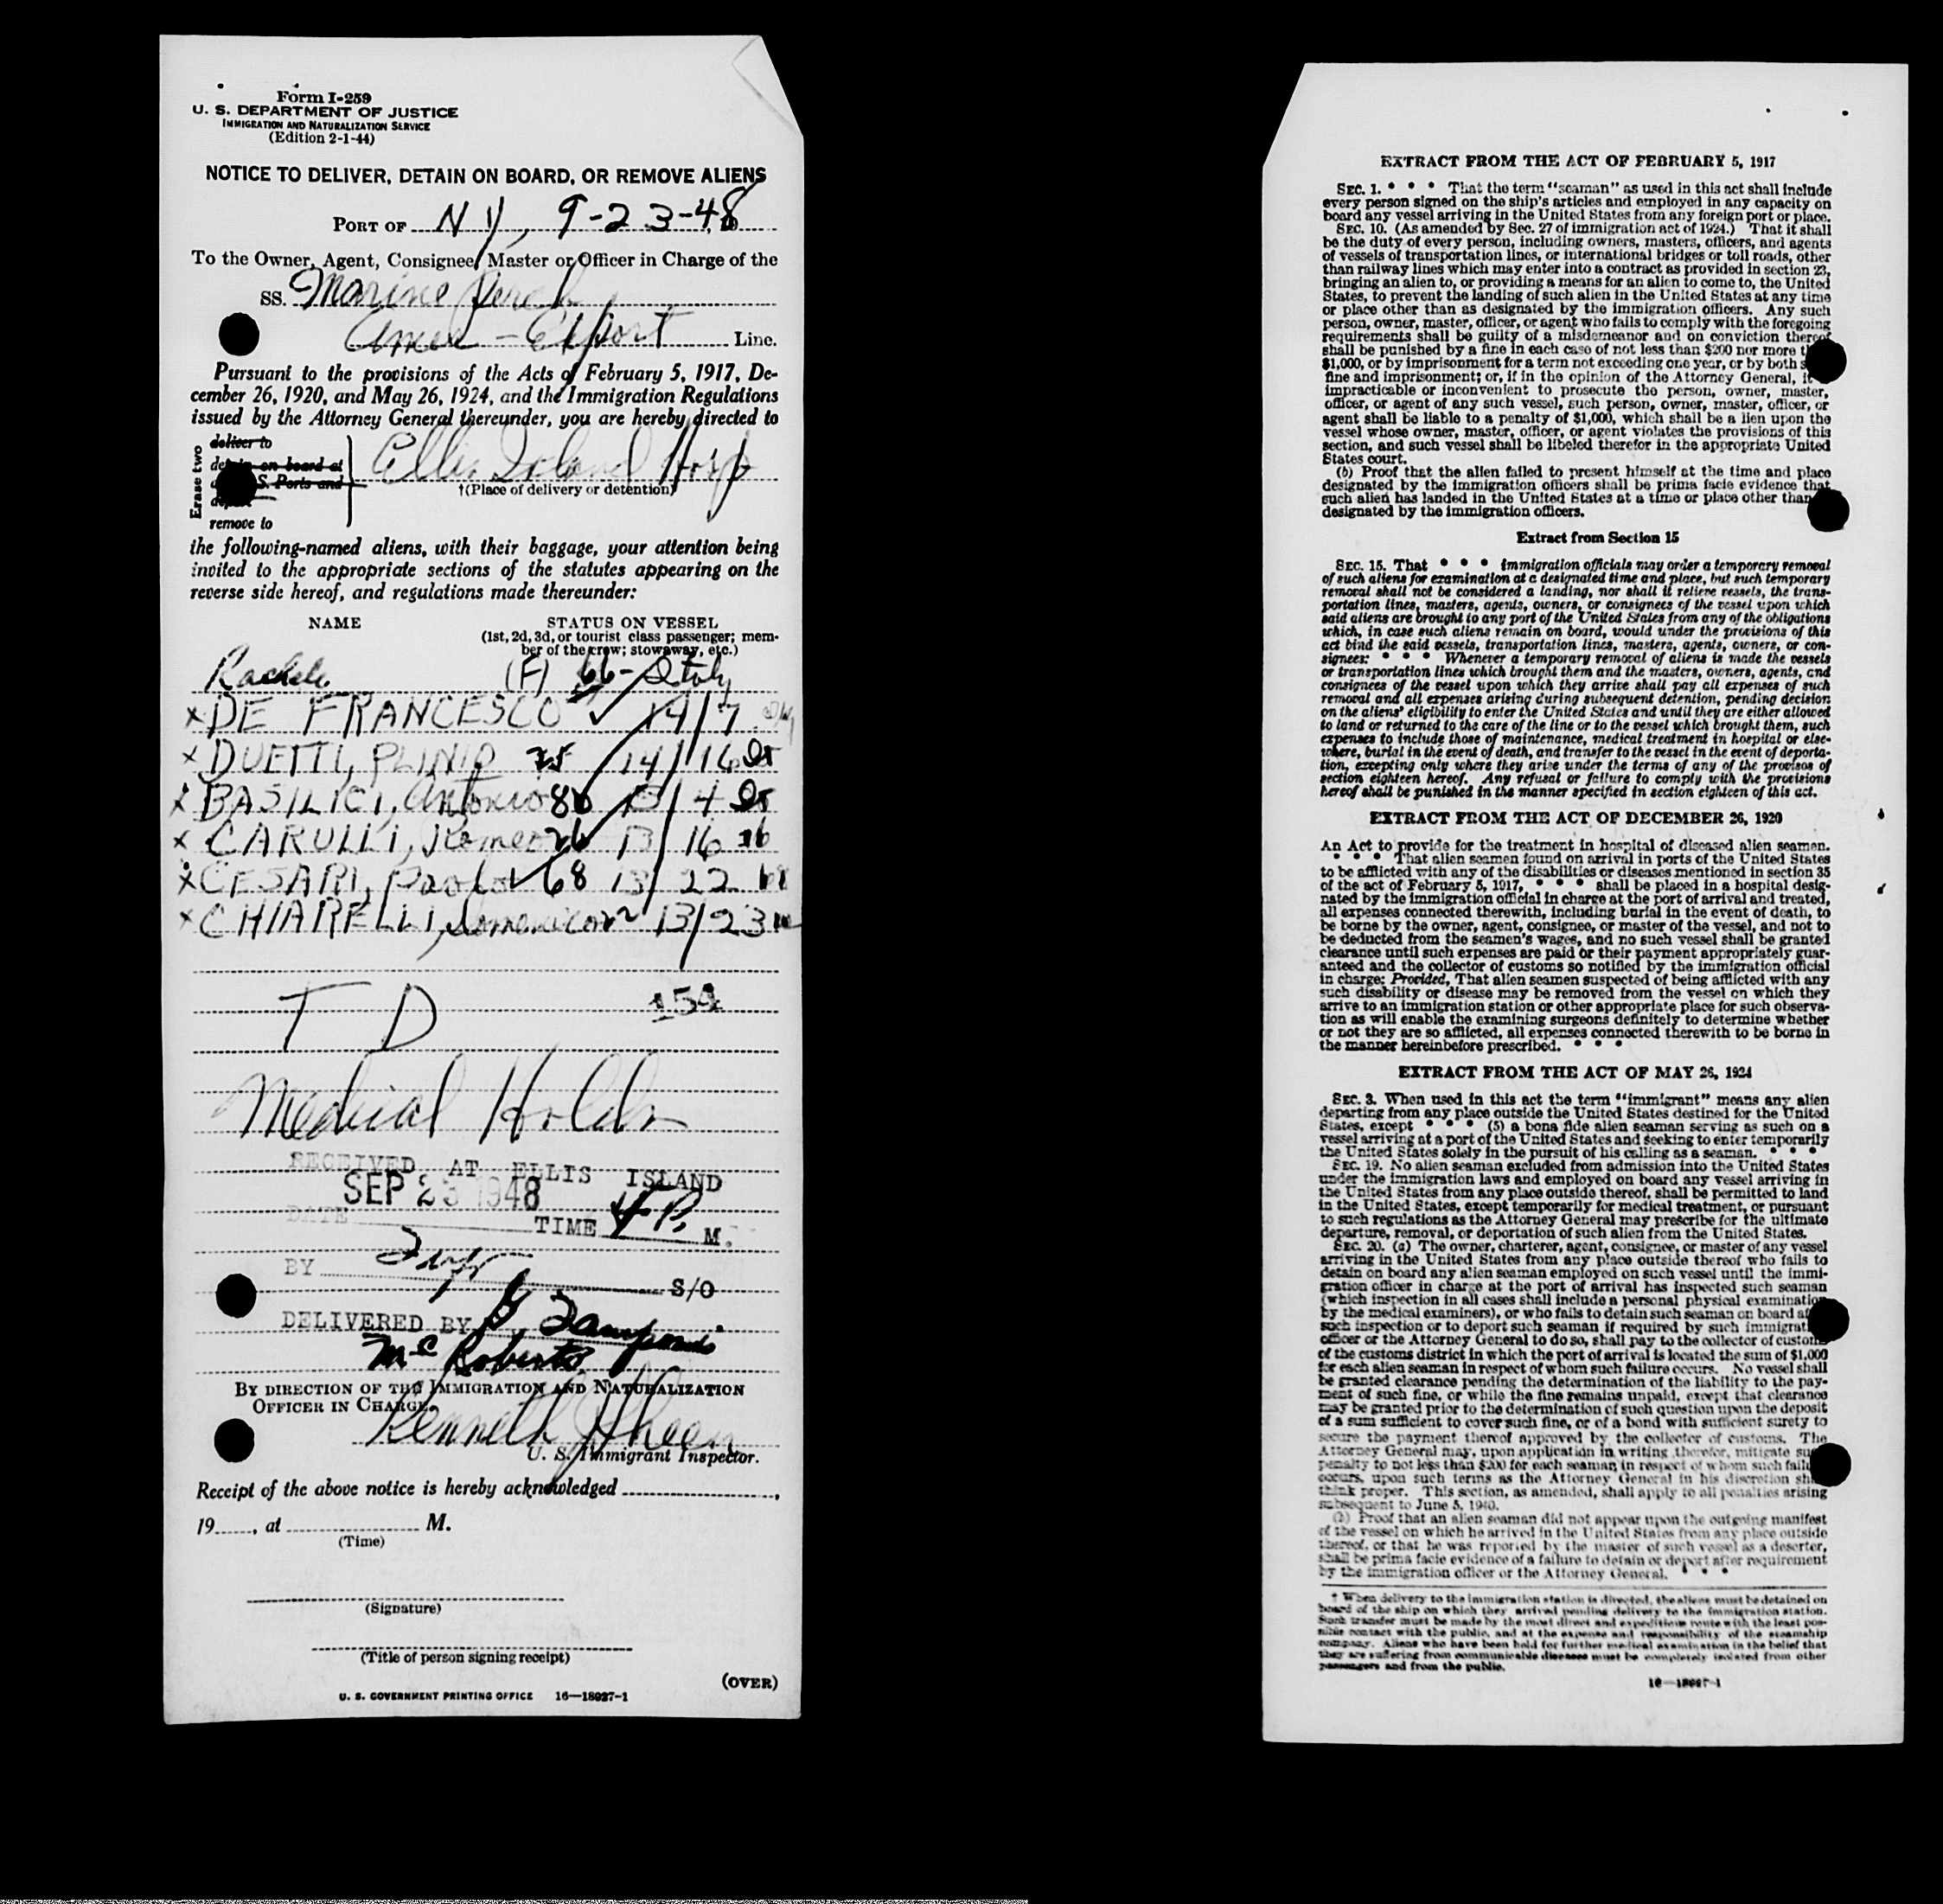 Form I-259
U. S. DEPARTMENT OF JUSTICE
IMMIGRATION AND NATURALIZATION SERVICE
(Edition 2-1-44)
NOTICE TO DELIVER, DETAIN ON BOARD, OR REMOVE ALIENS
PORT OF N Y, 9-23-48
To the Owner, Agent, Consignee, Master or Officer in Charge of the
SS. Marine Perch
Amer - Export Line.
Pursuant to the provisions of the Acts of February 5, 1917, De-
cember 26, 1920, and May 26, 1924, and the Immigration Regulations
issued by the Attorney General thereunder, you are hereby directed to
Erase two
deliver to
on board at
S. Ports and
remove to
Ellis Island Hosp
†(Place of delivery or detention)
the following-named aliens, with their baggage, your attention being
invited to the appropriate sections of the statutes appearing on the
reverse side hereof, and regulations made thereunder:
NAME STATUS ON VESSEL
(1st, 2d, 3d, or tourist class passenger; mem-
ber of the crew; stowaway, etc.)
Rachele (F) 66 - Italy
x DE FRANCESCO 14/7
x DUETTI, PLINIO 75 14/16 It
x BASILICI, Antonio 80 13/4 It
x CARULLI, Romeo 26 13/16
x CESARI, Paolo 68 13/22
x CHIARELLI, Domenico 13/23
T D 154
Medical Holds
RECEIVED AT ELLIS ISLAND
SEP 23 1948
DATE TIME 4 P. M.
BY S/O
DELIVERED BY
Mc Roberts
BY DIRECTION OF THE IMMIGRATION AND NATURALIZATION
OFFICER IN CHARGE.
Kenneth
U. S. Immigrant Inspector.
Receipt of the above notice is hereby acknowledged
19 , at M.
(Time)
(Signature)
(Title of person signing receipt)
(OVER)
U. S. GOVERNMENT PRINTING OFFICE 16—18027-1
EXTRACT FROM THE ACT OF FEBRUARY 5, 1917
SEC. 1. * * * That the term "seaman" as used in this act shall include
every person signed on the ship's articles and employed in any capacity on
board any vessel arriving in the United States from any foreign port or place.
SEC. 10. (As amended by Sec. 27 of immigration act of 1924.) That it shall
be the duty of every person, including owners, masters, officers, and agents
of vessels of transportation lines, or international bridges or toll roads, other
than railway lines which may enter into a contract as provided in section 23,
bringing an alien to, or providing a means for an alien to come to, the United
States, to prevent the landing of such alien in the United States at any time
or place other than as designated by the immigration officers. Any such
person, owner, master, officer, or agent who fails to comply with the foregoing
requirements shall be guilty of a misdemeanor and on conviction thereof
shall be punished by a fine in each case of not less than $200 nor more
$1,000, or by imprisonment for a term not exceeding one year, or by both
fine and imprisonment; or, if in the opinion of the Attorney General, it
impracticable or inconvenient to prosecute the person, owner, master,
officer, or agent of any such vessel, such person, owner, master, officer, or
agent shall be liable to a penalty of $1,000, which shall be a lien upon the
vessel whose owner, master, officer, or agent violates the provisions of this
section, and such vessel shall be libeled therefor in the appropriate United
States court.
(b) Proof that the alien failed to present himself at the time and place
designated by the immigration officers shall be prima facie evidence that
such alien has landed in the United States at a time or place other than
designated by the immigration officers.
Extract from Section 15
SEC. 15. That * * * immigration officials may order a temporary removal
of such aliens for examination at a designated time and place, but such temporary
removal shall not be considered a landing, nor shall it relieve vessels, the trans-
portation lines, masters, agents, owners, or consignees of the vessel upon which
said aliens are brought to any port of the United States from any of the obligations
which, in case such aliens remain on board, would under the provisions of this
act bind the said vessels, transportation lines, masters, agents, owners, or con-
signees: * * * Whenever a temporary removal of aliens is made the vessels
or transportation lines which brought them and the masters, owners, agents, and
consignees of the vessel upon which they arrive shall pay all expenses of such
removal and all expenses arising during subsequent detention, pending decision
on the aliens' eligibility to enter the United States and until they are either allowed
to land or returned to the care of the line or to the vessel which brought them, such
expenses to include those of maintenance, medical treatment in hospital or else-
where, burial in the event of death, and transfer to the vessel in the event of deporta-
tion, excepting only where they arise under the terms of any of the provisos of
section eighteen hereof. Any refusal or failure to comply with the provisions
hereof shall be punished in the manner specified in section eighteen of this act.
EXTRACT FROM THE ACT OF DECEMBER 26, 1920
An Act to provide for the treatment in hospital of diseased alien seamen.
* * * That alien seamen found on arrival in ports of the United States
to be afflicted with any of the disabilities or diseases mentioned in section 35
of the act of February 5, 1917, * * * shall be placed in a hospital desig-
nated by the immigration official in charge at the port of arrival and treated,
all expenses connected therewith, including burial in the event of death, to
be borne by the owner, agent, consignee, or master of the vessel, and not to
be deducted from the seamen's wages, and no such vessel shall be granted
clearance until such expenses are paid or their payment appropriately guar-
anteed and the collector of customs so notified by the immigration official
in charge: Provided, That alien seamen suspected of being afflicted with any
such disability or disease may be removed from the vessel on which they
arrive to an immigration station or other appropriate place for such observa-
tion as will enable the examining surgeons definitely to determine whether
or not they are so afflicted, all expenses connected therewith to be borne in
the manner hereinbefore prescribed. * * *
EXTRACT FROM THE ACT OF MAY 26, 1924
SEC. 3. When used in this act the term "immigrant" means any alien
departing from any place outside the United States destined for the United
States, except * * * (5) a bona fide alien seaman serving as such on a
vessel arriving at a port of the United States and seeking to enter temporarily
the United States solely in the pursuit of his calling as a seaman. * * *
SEC. 19. No alien seaman excluded from admission into the United States
under the immigration laws and employed on board any vessel arriving in
the United States from any place outside thereof, shall be permitted to land
in the United States, except temporarily for medical treatment, or pursuant
to such regulations as the Attorney General may prescribe for the ultimate
departure, removal, or deportation of such alien from the United States.
SEC. 20. (a) The owner, charterer, agent, consignee, or master of any vessel
arriving in the United States from any place outside thereof who fails to
detain on board any alien seaman employed on such vessel until the immi-
gration officer in charge at the port of arrival has inspected such seaman
(which inspection in all cases shall include a personal physical examination
by the medical examiners), or who fails to detain such seaman on board
such inspection or to deport such seaman if required by such
officer or the Attorney General to do so, shall pay to the collector of customs
of the customs district in which the port of arrival is located the sum of $1,000
for each alien seaman in respect of whom such failure occurs. No vessel shall
be granted clearance pending the determination of the liability to the pay-
ment of such fine, or while the fine remains unpaid, except that clearance
may be granted prior to the determination of such question upon the deposit
of a sum sufficient to cover such fine, or of a bond with sufficient surety to
secure the payment thereof approved by the collector of customs. The
Attorney General may, upon application in writing therefor, mitigate
penalty to not less than $200 for each seaman in respect of whom such
occurs, upon such terms as the Attorney General in his discretion
think proper. This section, as amended, shall apply to all penalties arising
subsequent to June 5, 1940.
(b) Proof that an alien seaman did not appear upon the outgoing manifest
of the vessel on which he arrived in the United States from any place outside
thereof, or that he was reported by the master of such vessel as a deserter,
shall be prima facie evidence of a failure to detain or deport after requirement
by the immigration officer or the Attorney General. * * *
† When delivery to the immigration station is directed, the aliens must be detained on
board of the ship on which they arrived pending delivery to the immigration station.
Such transfer must be made by the most direct and expeditious route with the least pos-
sible contact with the public, and at the expense and responsibility of the steamship
company. Aliens who have been held for further medical examination in the belief that
they are suffering from communicable diseases must be completely isolated from other
passengers and from the public.
16—18027-1